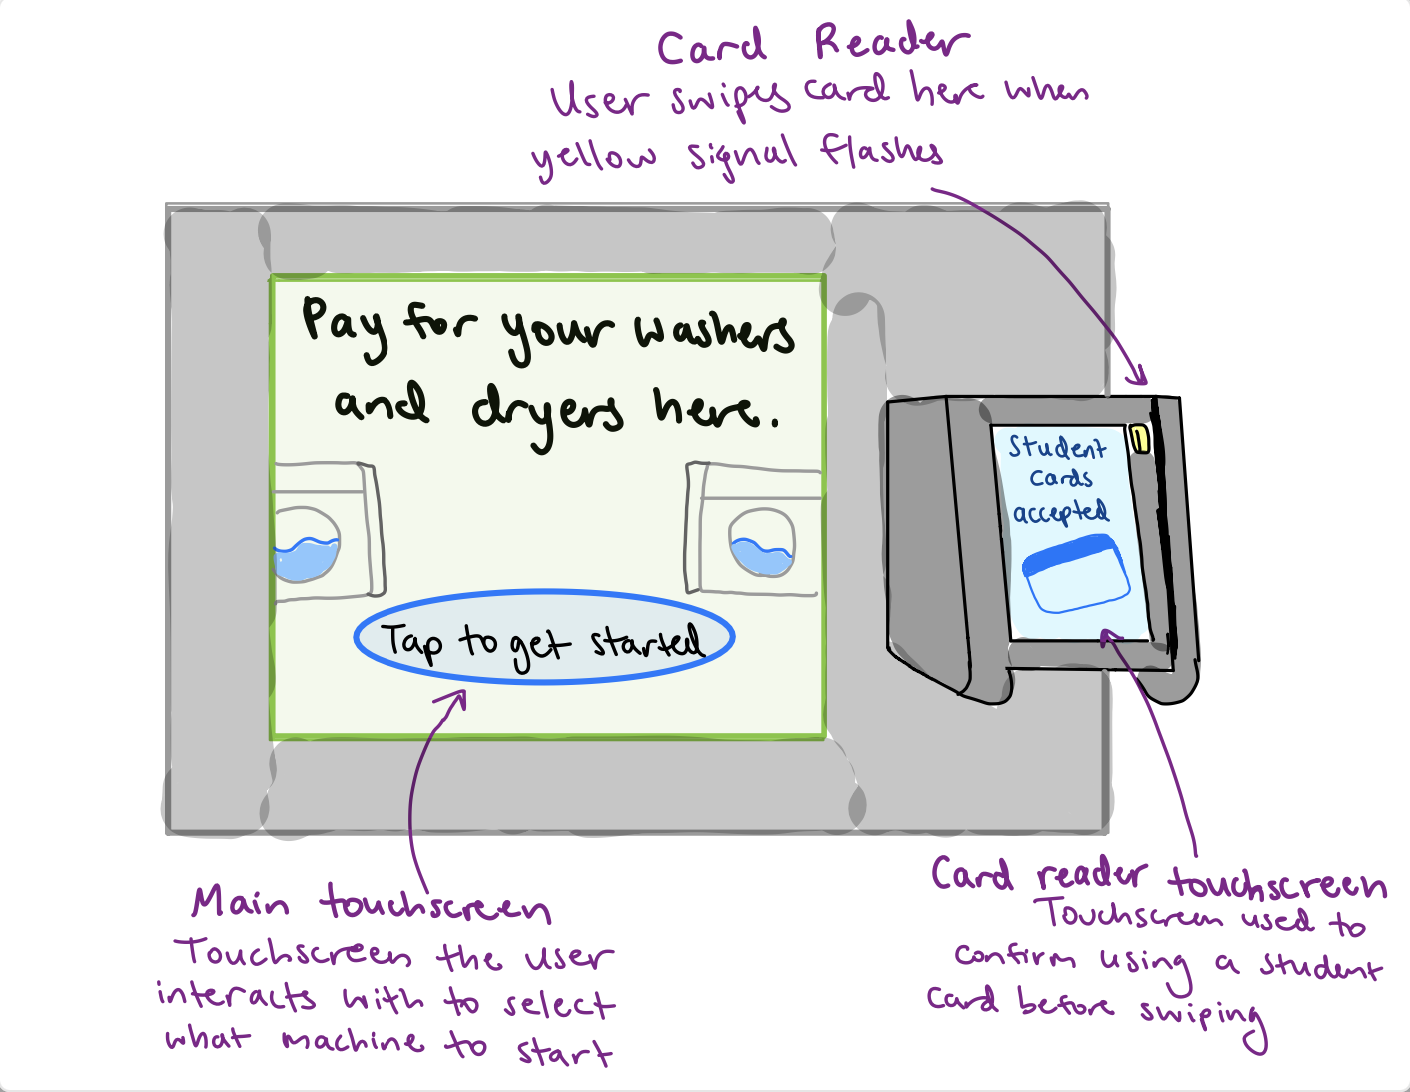 Card Reader
User swipes card here when
yellow signal flashes
Pay for your washers
and dryers here.
Student
Cards
accepted
Tap to get started
Main touchscreen
Touchscreen the user
interacts with to select
what machine to start
Card reader touchscreen
Touchscreen used to
confirm using a student
card before swiping